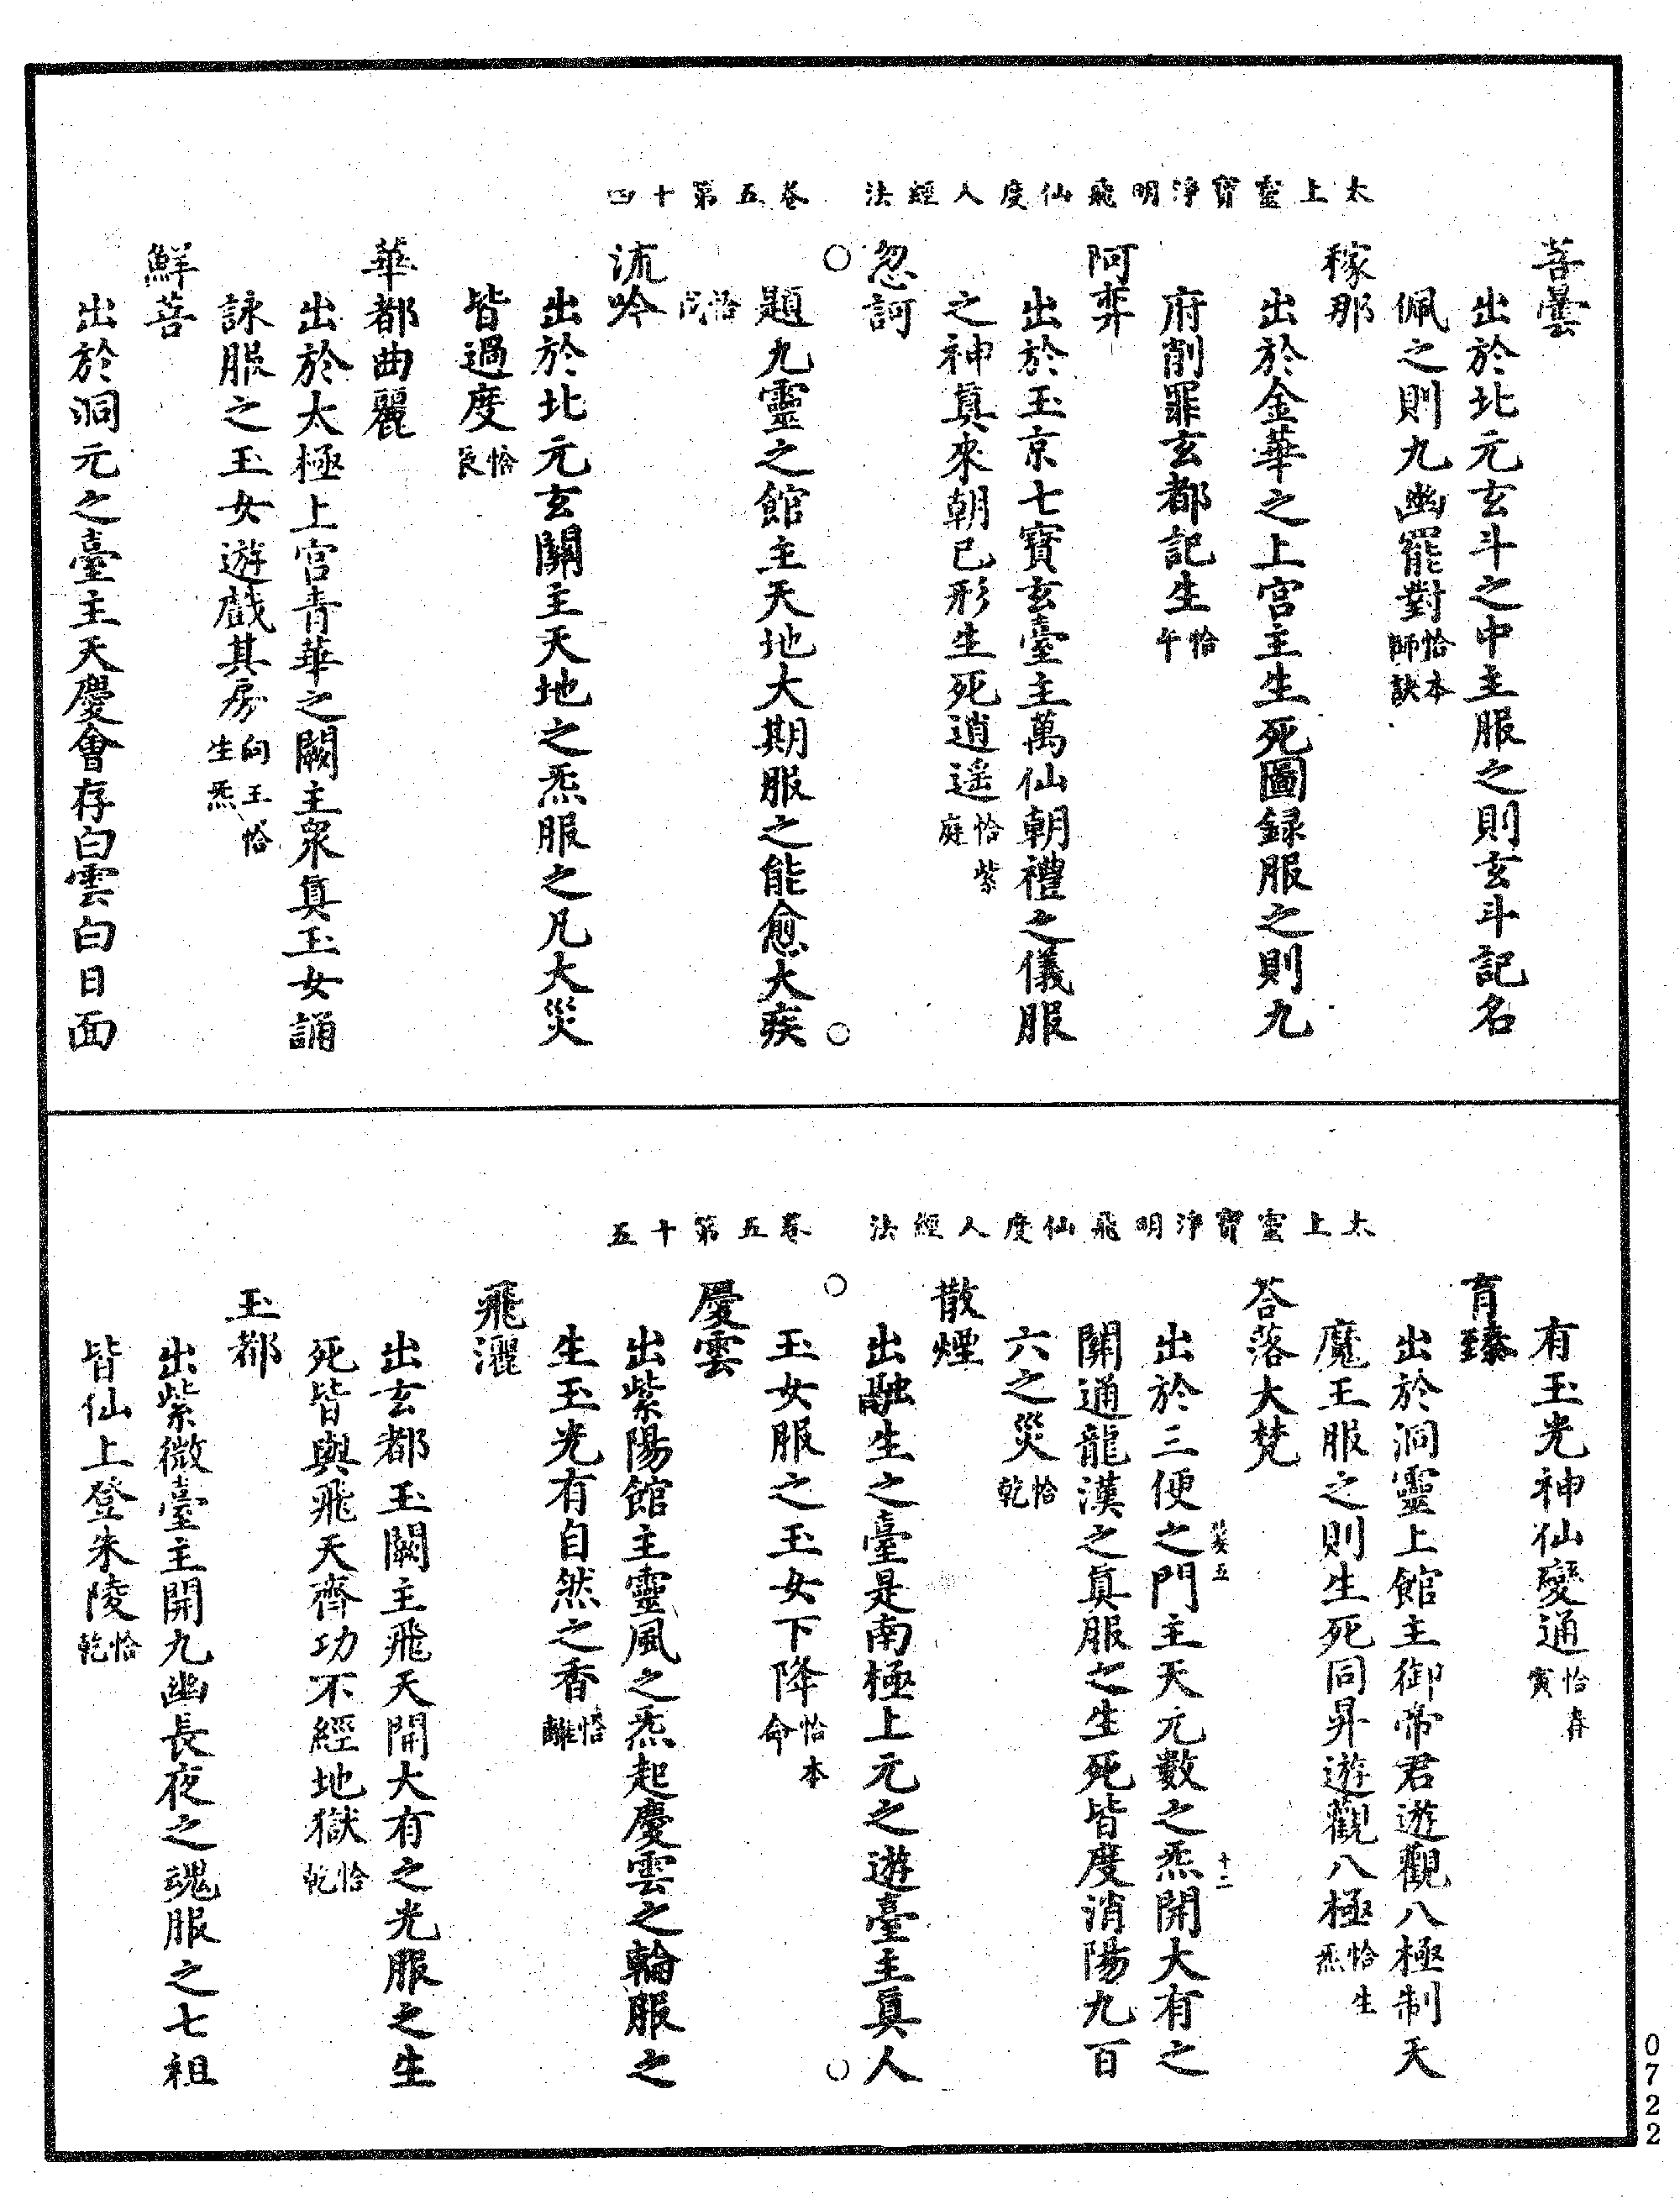 太上靈寶淨明飛仙度人經法　卷五第十四
菩曇
出於北元玄斗之中主服之則玄斗記名
佩之則九幽罷對恰本師訣
稼那
出於金華之上宮主生死圖録服之則九
府削罪玄都記生恰午
阿弈
出於玉京七寶玄臺主萬仙朝禮之儀服
之神真來朝已形生死逍遥恰紫庭
忽訶
題九靈之館主天地大期服之能愈大疾
恰
流吟
出於北元玄關主天地之炁服之凡大災
皆過度恰辰
華都曲麗
出於太極上宮青華之闕主衆真玉女誦
詠服之玉女遊戲其房向王恰生炁
鮮菩
出於洞元之臺主天慶會存白雲白日面
太上靈寶淨明飛仙度人經法　卷五第十五
有玉光神仙變通恰寅
育臻
出於洞靈上館主御帝君遊觀八極制天
魔王服之則生死同昇遊觀八極恰生炁
荅落大梵
出於三便之門主天元數之炁開大有之
開通龍漢之真服之生死皆度消陽九百
六之災恰乾
散煙
出融生之臺是南極上元之遊臺主真人
玉女服之玉女下降恰本命
慶雲
出紫陽館主靈風之炁起慶雲之輪服之
生玉光有自然之香恰離
飛灑
出玄都玉闕主飛天開大有之光服之生
死皆與飛天齊功不經地獄恰乾
玉都
出紫微臺主開九幽長夜之魂服之七祖
皆仙上登朱陵恰乾
0722